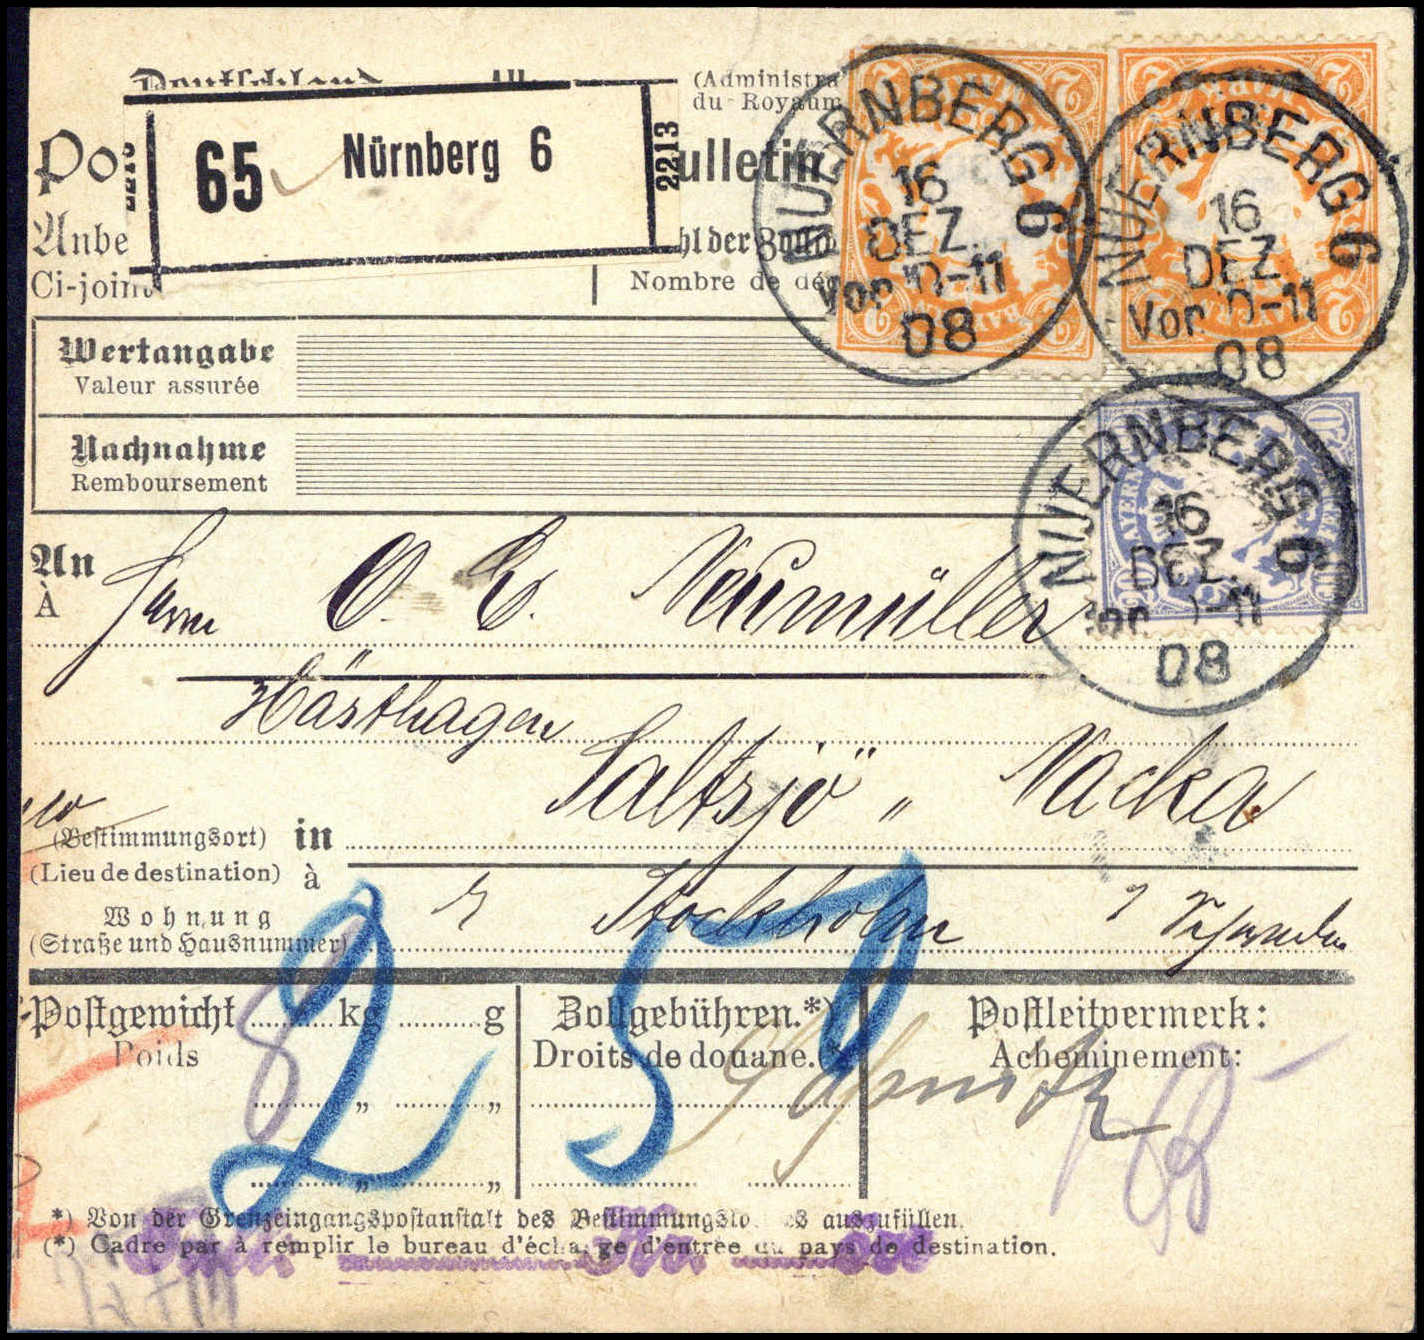 (Administra
du Royaum
65 Nürnberg 6
2213
Po
ulletin
Anbe
hl der
Ci-joint
Nombre de dég
NUERNBERG 6
16
DEZ.
Vor 10-11
08
NUERNBERG 6
16
DEZ.
Vor 10-11
08
NUERNBERG 6
16
DEZ.
Vor. 10-11
08
Wertangabe
Valeur assurée
Nachnahme
Remboursement
An
À
Herrn O. E. Neumüller
Hästhagen
Saltsjö " Nacka
(Bestimmungsort) in
(Lieu de destination) à
Stockholm Schweden
Wohnung
(Straße und Hausnummer)
Postgewicht kg g
Poids
Zollgebühren.*)
Droits de douane.(*
Postleitvermerk:
Acheminement:
8
2 50
*) Von der Grenzeingangspostanstalt des Bestimmungslandes auszufüllen.
(*) Cadre par à remplir le bureau d'échange d'entrée du pays de destination.